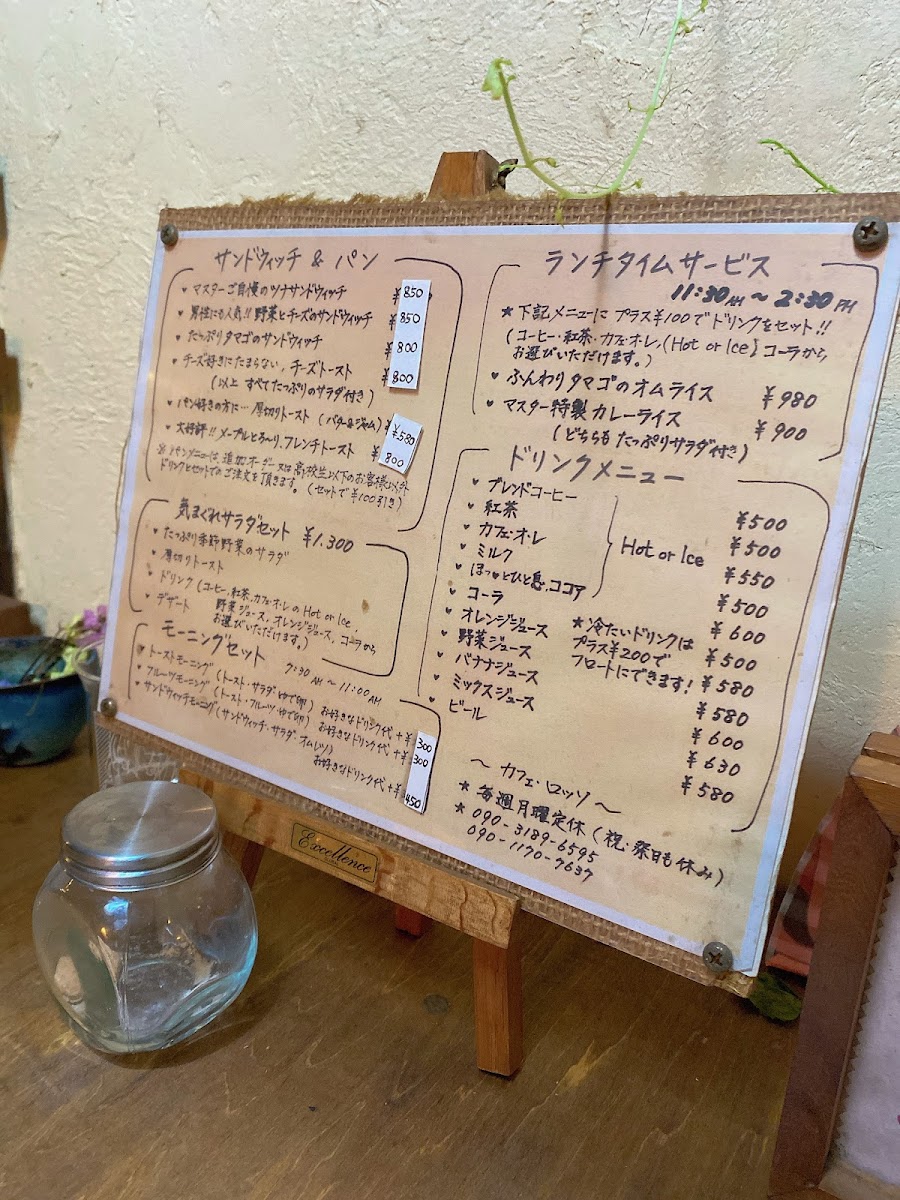 サンドウィッチ & パン
♥ マスターご自慢のツナサンドウィッチ ¥850
♥ 男性にも人気!! 野菜とチーズのサンドウィッチ ¥850
♥ たっぷりタマゴのサンドウィッチ ¥800
♥ チーズ好きにたまらない, チーズトースト ¥800
(以上 すべてたっぷりのサラダ付き)
♥ パン好きの方に… 厚切りトースト (バターorジャム) ¥580
♥ 大好評!! メープルとろ〜り, フレンチトースト ¥800
※ パンメニューは、追加オーダー又は高校生以下のお客様以外
ドリンクとセットでのご注文を頂きます。(セットで¥100引き)
気まぐれサラダセット ¥1.300
♥ たっぷり季節野菜のサラダ
♥ 厚切りトースト
♥ ドリンク (コーヒー, 紅茶, カフェ・オ・レの Hot or Ice,
野菜ジュース, オレンジジュース, コーラから
お選びいただけます。)
♥ デザート
モーニングセット 7:30 AM 〜 11:00 AM
♥ トーストモーニング (トースト・サラダ・ゆで卵) お好きなドリンク代 +¥300
♥ フルーツモーニング (トースト・フルーツ・ゆで卵) お好きなドリンク代 +¥300
♥ サンドウィッチモーニング (サンドウィッチ・サラダ・オムレツ)
お好きなドリンク代 +¥450
ランチタイムサービス
11:30 AM 〜 2:30 PM
★ 下記メニューに プラス¥100でドリンクをセット!!
(コーヒー・紅茶・カフェ・オ・レ, (Hot or Ice) コーラから
お選びいただけます。)
♥ ふんわりタマゴのオムライス ¥980
♥ マスター特製カレーライス ¥900
(どちらも たっぷりサラダ付き)
ドリンクメニュー
♥ ブレンドコーヒー ¥500
♥ 紅茶 ¥500
♥ カフェ・オ・レ ¥550
♥ ミルク ¥500
♥ ほっとひと息, ココア ¥600
Hot or Ice
♥ コーラ ¥500
♥ オレンジジュース ¥580
♥ 野菜ジュース ¥580
♥ バナナジュース ¥600
♥ ミックスジュース ¥630
♥ ビール ¥580
★ 冷たいドリンクは
プラス¥200で
フロートにできます!
〜 カフェ・ロッソ 〜
★ 毎週月曜定休 (祝・祭日も休み)
★ 090-3189-6595
090-1170-7637
Excellence